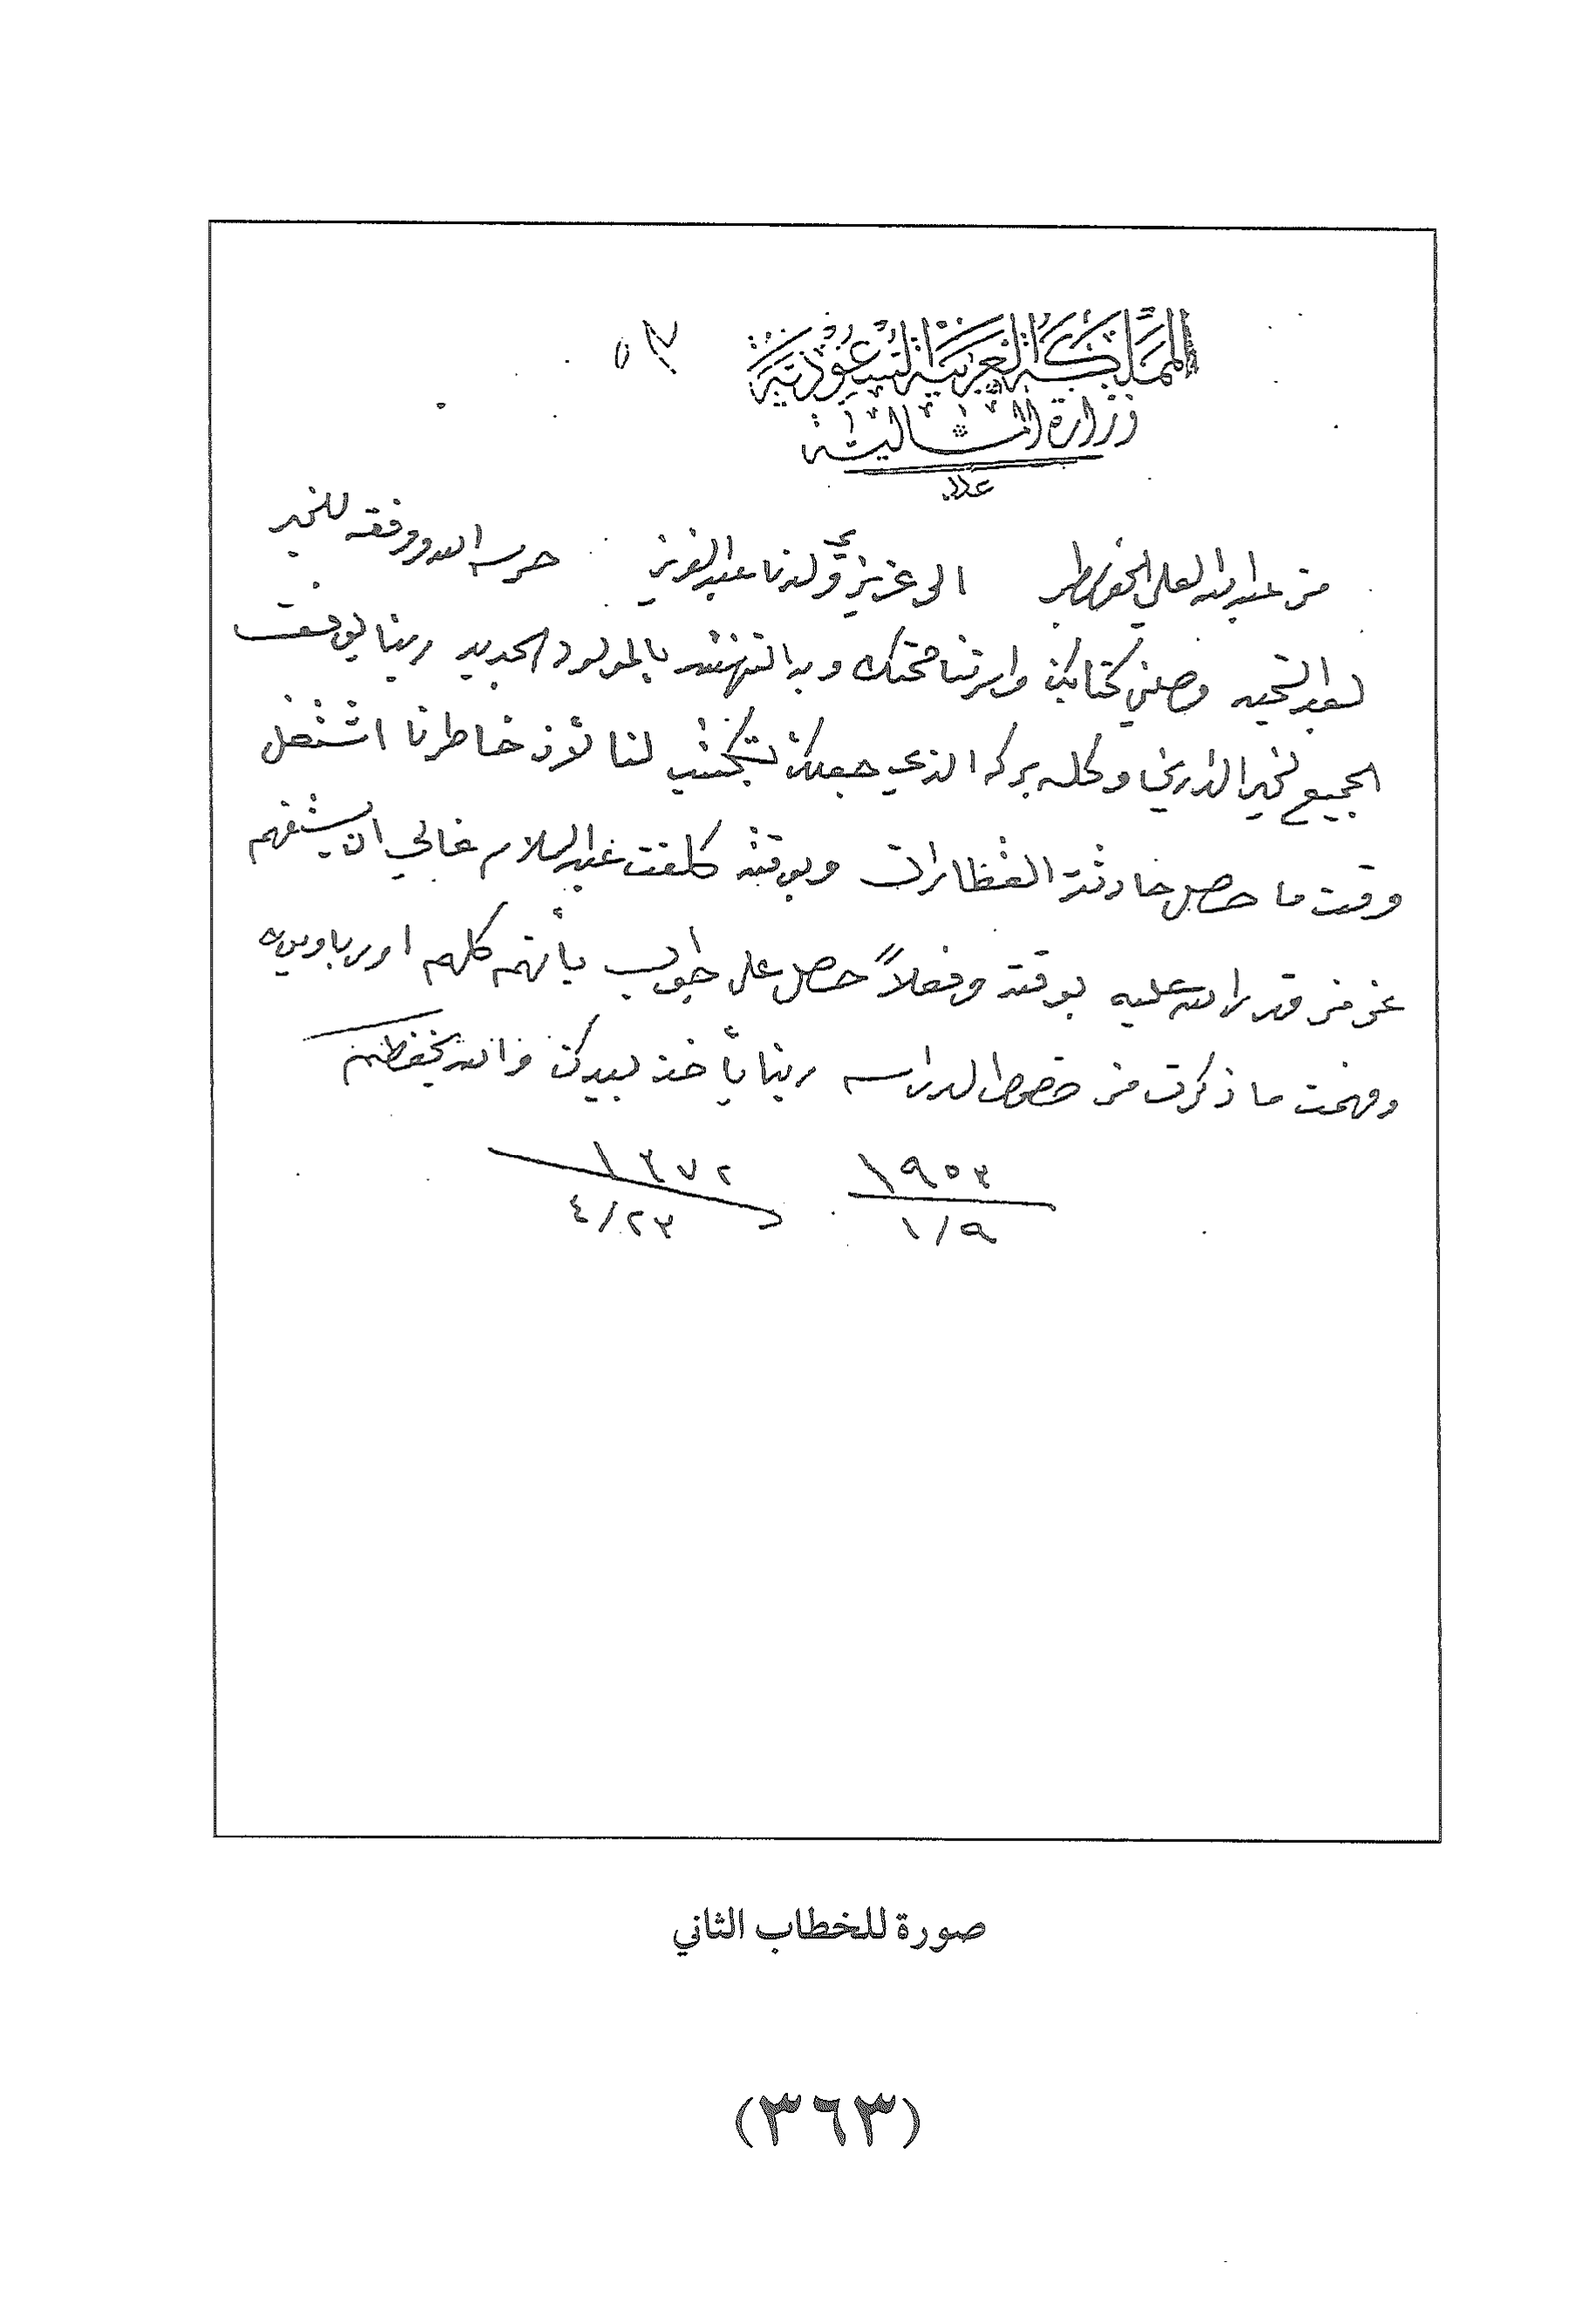 المملكة العربية السعودية
وزارة المالية
عدد
من عبدالله العلي الخويطر الى عزيزي ولدنا عبدالعزيز حرسه الله ووفقه للخير
بعد التحيه وصلني كتابك وسرتنا صحتك وبه التهنئه بالمولود الجديد ربنا يوفقك
الجميع لخير الدارين وكله بركه الذي جعلك تكتب لنا لأن خاطرنا اشتغل
وقت ما حصل حادثة القطارات وبوقته كلفت عبدالسلام غالي ان يستفهم
عن من قدر الله عليه بوقته وفعلاً حصل على جواب بأنهم كلهم اورباويين
وفهمت ما ذكرت من خصوص الدراسه ربنا يأخذ بيدك والله يحفظكم
١٩٥٣ ١٣٧٢
١/٩ ٤/٢٣
صورة للخطاب الثاني
(٣٦٣)